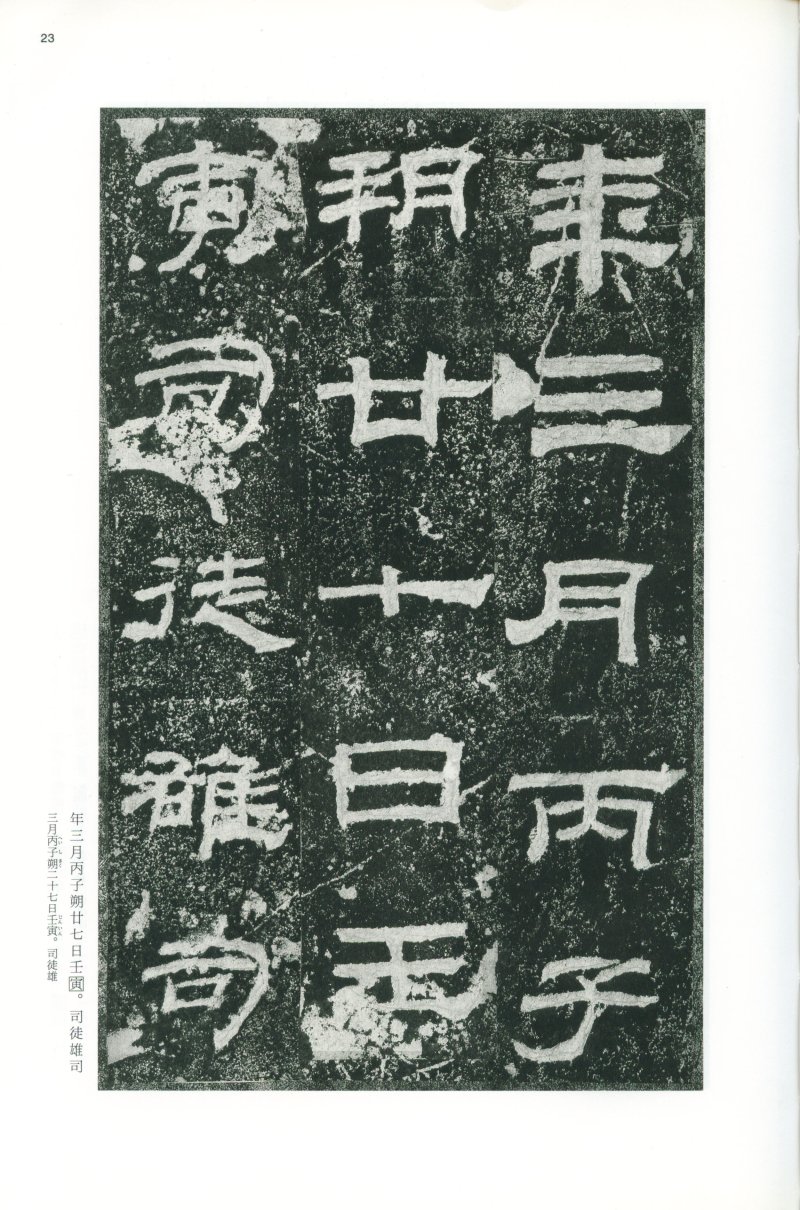 23
年三月丙子
朔廿七日壬
寅司徒雄司
年三月丙子朔廿七日壬寅。司徒雄司
三月丙子朔二十七日壬寅。司徒雄